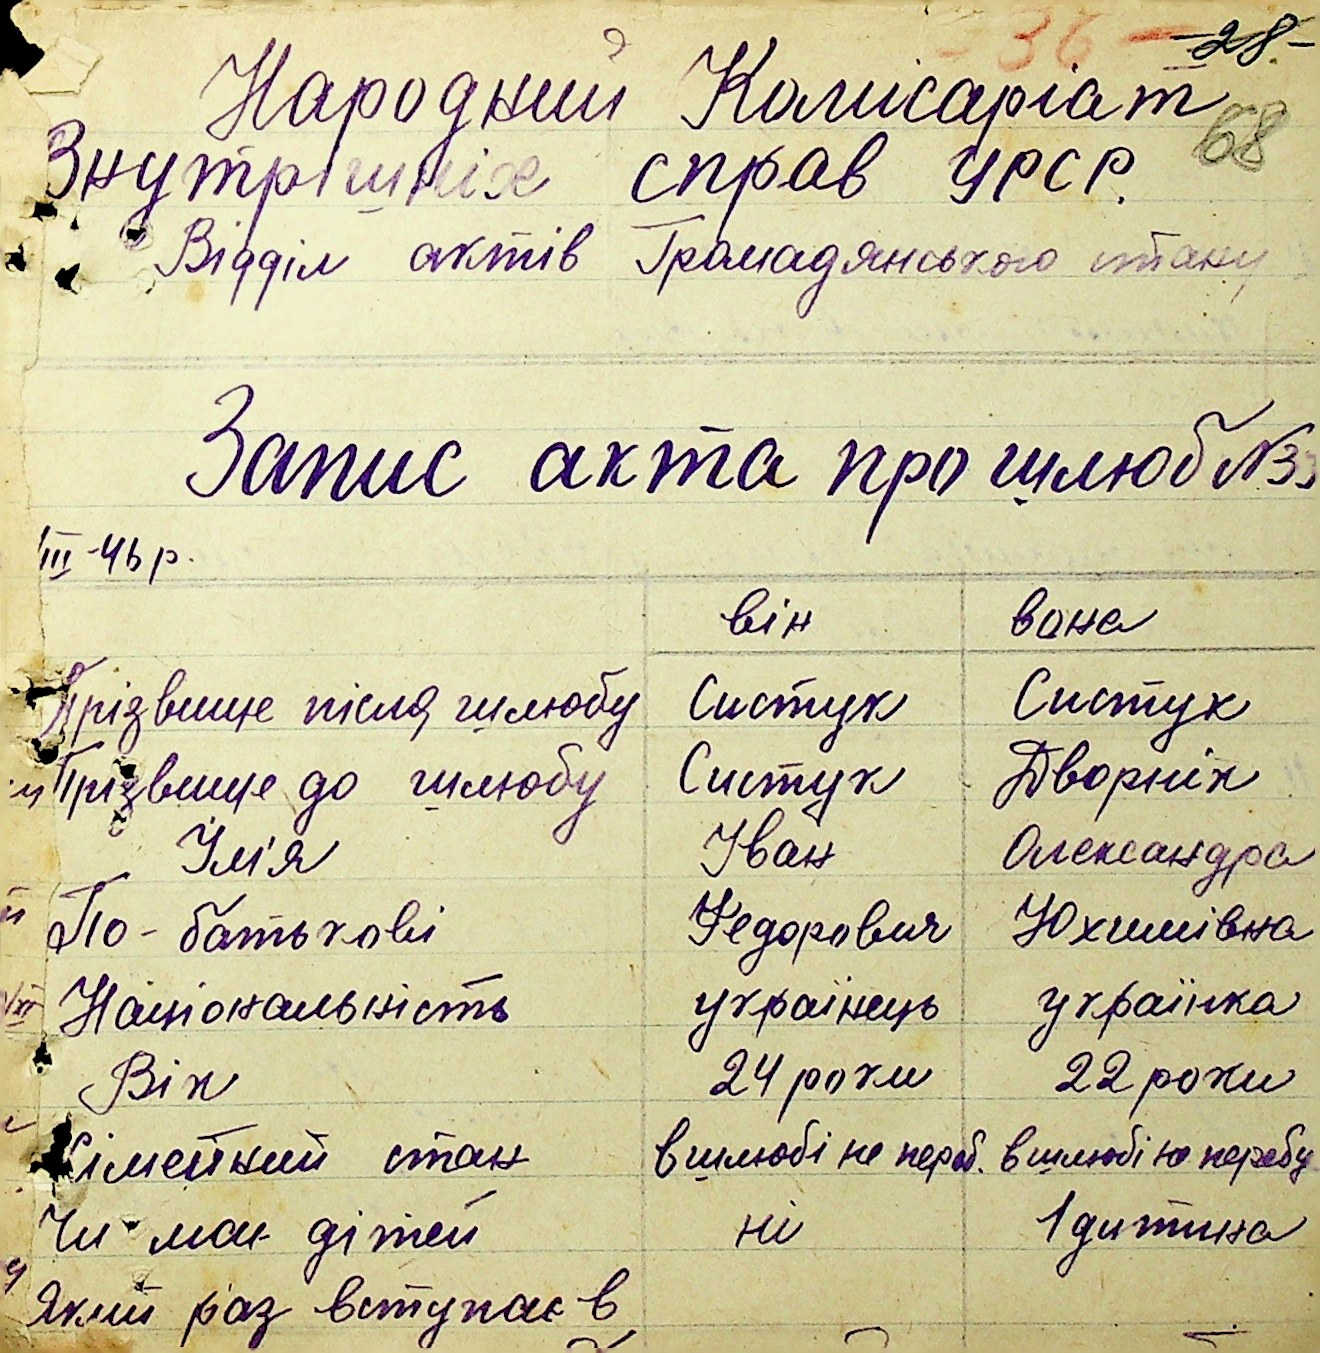 - 36 - -28-
Народний Комісаріат
68
Внутрішніх справ УРСР.
Відділ актів Громадянського стану
Запис акта про шлюб №33
III-46 р.
він вона
Прізвище після шлюбу Систук Систук
Прізвище до шлюбу Систук Дворнік
Ім'я Іван Олександра
По-батькові Федорович Юхимівна
Національність українець українка
Вік 24 роки 22 роки
Сімейний стан в шлюбі не переб. в шлюбі не перебу
Чи має дітей ні 1 дитина
Який раз вступає в